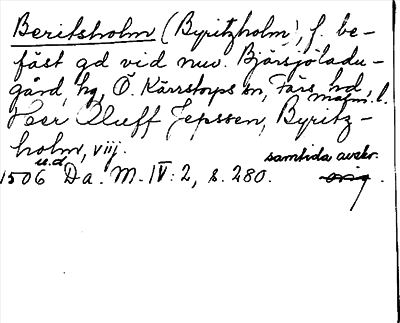 Beritsholm (Byritzholm), f. be-
fäst gd vid nuv. Bjärsjöladu-
gård, hg, Ö. Kärrstorps sn, Färs hd,
Malm. l.
Herr Oluff Jepssen, Byritz-
holm, viij.
u.d.
samtida avskr.
1506 Da. M. IV: 2, s. 280. orig.